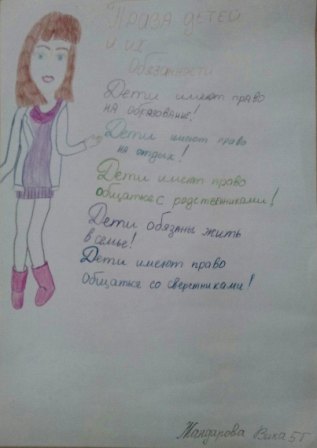 Права детей
и их
обязанности
Дети имеют право
на образование!
Дети имеют право
на отдых!
Дети имеют право
общаться с родственниками!
Дети обязаны жить
в семье!
Дети имеют право
общаться со сверстниками!
Жалдарова Вика 5Г